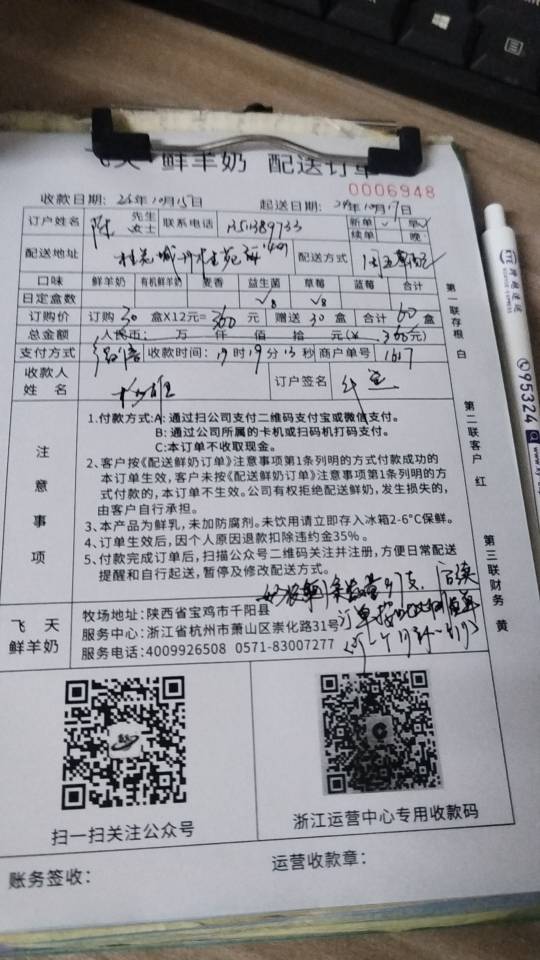 飞天 鲜羊奶 配送订单
0006948
收款日期: 起送日期:
订户姓名 陈 先生 女士 联系电话 新单 ✓ 早 续单 晚
配送地址 配送方式
口味 鲜羊奶 有机鲜羊奶 麦香 益生菌 草莓 蓝莓 合计
日定盒数 ✓8 ✓8
订购价 订购 30 盒X12元= 360 元 赠送 30 盒 合计 60 盒
总金额 人民币: 万 仟 佰 拾 元(¥ 360元)
支付方式 收款时间: 19 时 19 分 13 秒 商户单号 1617
收款人姓名 订户签名
注意事项
1.付款方式:A: 通过扫公司支付二维码支付宝或微信支付。
B: 通过公司所属的卡机或扫码机打码支付。
C:本订单不收取现金。
2、客户按《配送鲜奶订单》注意事项第1条列明的方式付款成功的
本订单生效,客户未按《配送鲜奶订单》注意事项第1条列明的方
式付款的,本订单不生效。公司有权拒绝配送鲜奶,发生损失的,
由客户自行承担。
3、本产品为鲜乳,未加防腐剂。未饮用请立即存入冰箱2-6°C保鲜。
4、订单生效后,因个人原因退款扣除违约金35%。
5、付款完成订单后,扫描公众号二维码关注并注册,方便日常配送
提醒和自行起送,暂停及修改配送方式。
飞天鲜羊奶
牧场地址:陕西省宝鸡市千阳县
服务中心:浙江省杭州市萧山区崇化路31号
服务电话:4009926508 0571-83007277
第一联存根 白
第二联客户 红
第三联财务 黄
扫一扫关注公众号
浙江运营中心专用收款码
账务签收:
运营收款章:
95324